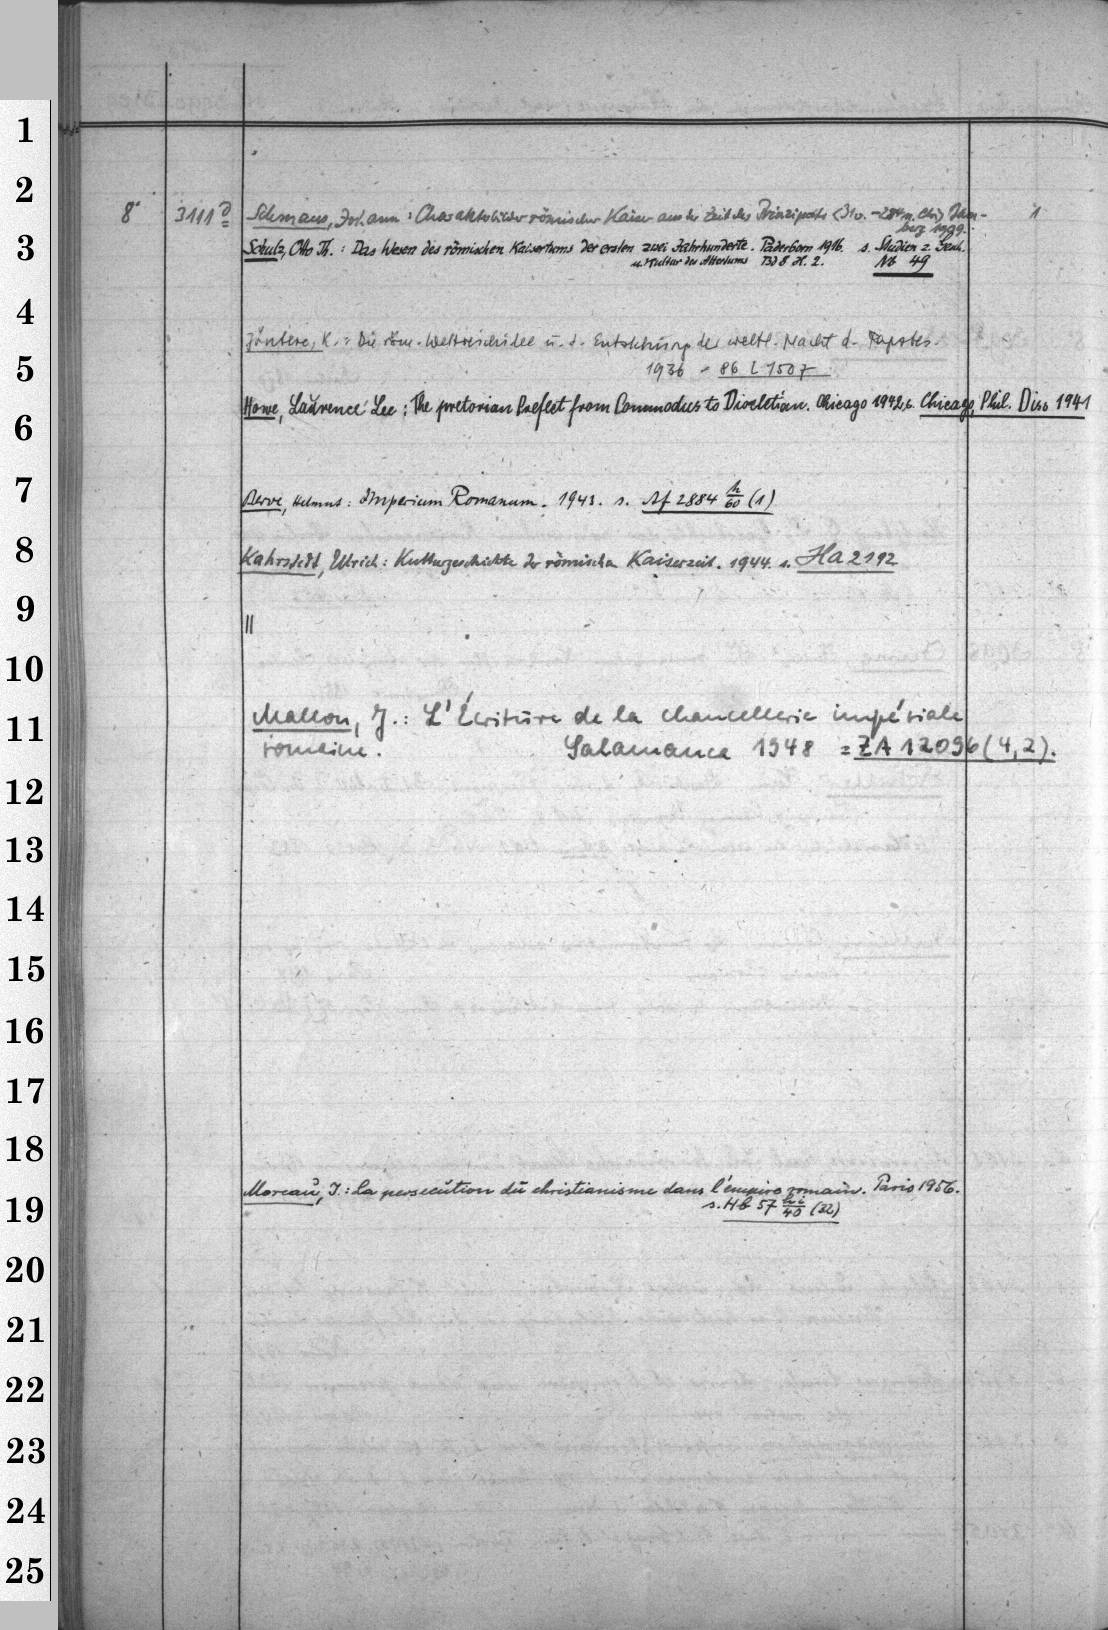 1
2
8° 3111 D Schmaus, Johann: Charakterbilder römischer Kaiser aus der Zeit des Prinzipats (31 v. - 284 n. Chr.) Bam- 1
berg 1939.
3
Schulz, Otto Th.: Das Wesen des römischen Kaisertums der ersten zwei Jahrhunderte. Paderborn 1916. s. Studien z. Gesch.
u. Kultur des Altertums Bd 8 H. 2. Nb 49
4
K.: Die röm. Weltreichidee u. d. Entstehung der weltl. Macht d. Papstes.
5
1936 = 86 L 1507
Howe, Laurence Lee: The pretorian Prefect from Commodus to Diocletian. Chicago 1942. s. Chicago, Phil. Diss 1941
6
7
Berve, Helmut: Imperium Romanum. 1943. s. Af 2884 h/60 (1)
8
Kahrstedt, Ulrich: Kulturgeschichte der römischen Kaiserzeit. 1944. s. Ha 2192
9
||
10
11
Mallon, J.: L'Écriture de la chancellerie impériale
romaine. Salamanca 1948 = ZA 12096 (4,2).
12
13
14
15
16
17
18
19
Moreau, J.: La persecution du christianisme dans l'empire romain. Paris 1956.
s. Hb 57 hi/40 (32)
20
21
22
23
24
25